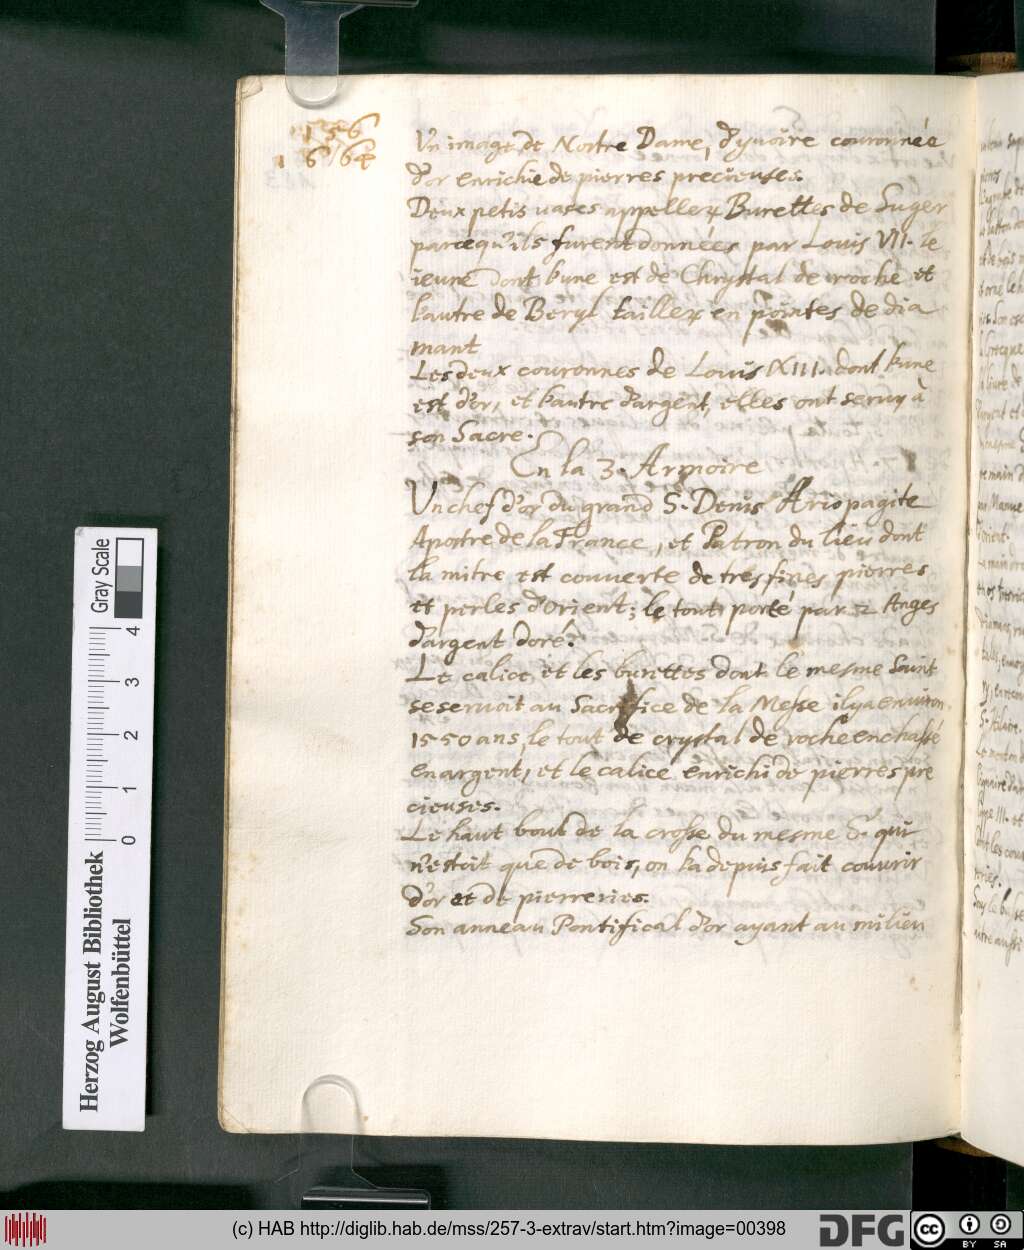 156
1 6 64
Un image de Nostre Dame, d'yuoire couronnée
d'or enrichie de pierres precieuses.
Deux petis vases appellez Burettes de Suger
parcequ'ils furent données par Louis VII. le
ieune dont l'une est de Chrystal de roche et
l'autre de Beryl taillez en pointes de dia
mant
Les deux couronnes de Louis XIII. dont l'une
est d'or, et l'autre d'argent, elles ont seruy à
son Sacre.
En la 3. Armoire
Un chef d'or du grand S. Denis Ariopagite
Apostre de la France, et Patron du lieu dont
la mitre est couverte de tres fines pierres
et perles d'Orient; le tout porté par 2 Anges
d'argent doré.
Le calice, et les burettes dont le mesme Saint
se servoit au Sacrifice de la Messe il y a environ
1550 ans, le tout de crystal de roche enchassé
en argent, et le calice enrichi de pierres pre
cieuses.
Le haut bout de la crosse du mesme S. qui
n'estoit que de bois, on l'a depuis fait couvrir
d'or et de pierreries.
Son anneau Pontifical d'or ayant au milieu
Gray Scale
0 1 2 3 4
Herzog August Bibliothek
Wolfenbüttel
(c) HAB http://diglib.hab.de/mss/257-3-extrav/start.htm?image=00398
DFG
cc
BY SA